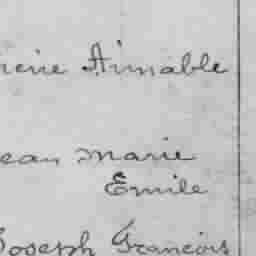 Aimable
ean Marie
Emile
Joseph François